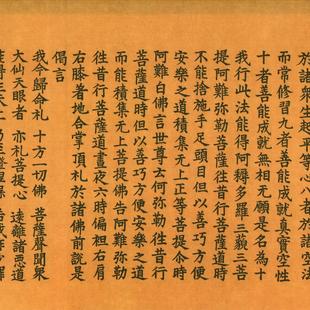 於諸衆生起平等心八者於諸空法
而常修習九者善能成就真實空性
十者善能成就無相无願是名為十
我行此法能得阿耨多羅三藐三菩
提阿難弥勒菩薩往昔行菩薩道時
不能捨施手足頭目但以善巧方便
安樂之道積集无上正等菩提尒時
阿難白佛言世尊云何弥勒往昔行
菩薩道時但以善巧方便安樂之道
而能積集无上菩提佛告阿難弥勒
往昔行菩薩道晝夜六時偏袒右肩
右膝着地合掌頂礼於諸佛前說是
偈言
我今歸命礼 十方一切佛 菩薩聲聞衆
大仙天眼者 亦礼菩提心 遠離諸惡道